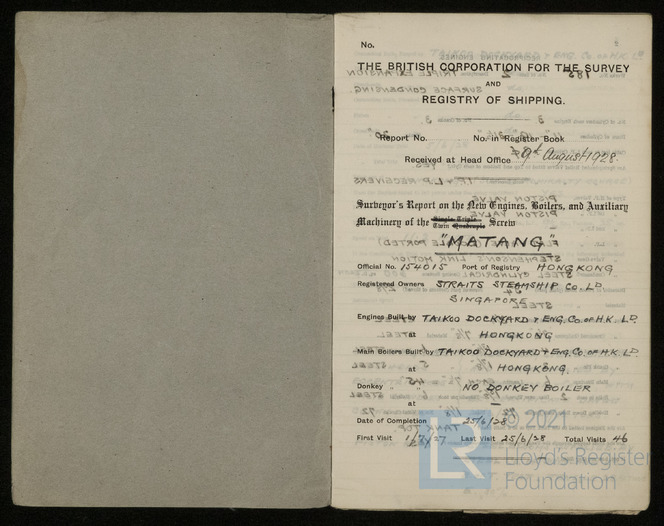 No.
THE BRITISH CORPORATION FOR THE SURVEY
AND
REGISTRY OF SHIPPING.
Report No. No. in Register Book
Received at Head Office 9th August 1928.
Surveyor's Report on the New Engines, Boilers, and Auxiliary
Machinery of the Single Triple Twin Quadruple Screw
"MATANG"
Official No. 154015 Port of Registry HONGKONG
Registered Owners STRAITS STEAMSHIP CO. LD.
SINGAPORE
Engines Built by TAIKOO DOCKYARD & ENG. CO. OF H.K. LD.
at HONGKONG
Main Boilers Built by TAIKOO DOCKYARD & ENG. CO. OF H.K. LD.
at HONGKONG.
Donkey " NO DONKEY BOILER
at —
Date of Completion 25/6/28
First Visit Last Visit 25/6/28 Total Visits 46
LR © 2021
Lloyd's Register
Foundation